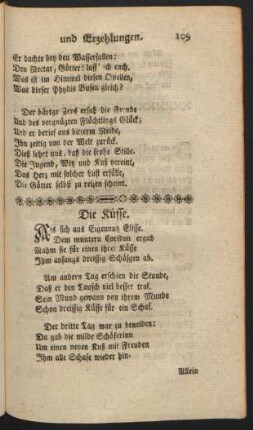 und Erzehlungen. 109
Er dachte bey den Wasserfullen:
Den Nectar, Götter! lass' ich euch.
Was ist im Himmel diesen Quellen,
Was dieser Phyllis Busen gleich?
Der bärtge Zevs ersah die Freude
Und des vergnügten Flüchtlings Glück;
Und er berief aus bitterm Neide,
Ihn zeitig von der Welt zurück.
Dieß lehrt uns, daß die frohe Stille,
Die Jugend, Witz und Kuß vereint,
Das Herz mit solcher Lust erfülle,
Die Götter selbst zu reizen scheint.
Die Küsse.
Als sich aus Eigennutz Elisse
Dem muntern Coridon ergab
Nahm sie für einen ihrer Küsse
Ihm anfangs dreißig Schäfgen ab.
Am andern Tag erschien die Stunde,
Daß er den Tausch viel besser traf.
Sein Mund gewann von ihrem Munde
Schon dreißig Küsse für ein Schaf.
Der dritte Tag war zu beneiden:
Da gab die milde Schäferinn
Um einen neuen Kuß mit Freuden
Ihm alle Schafe wieder hin.
Allein